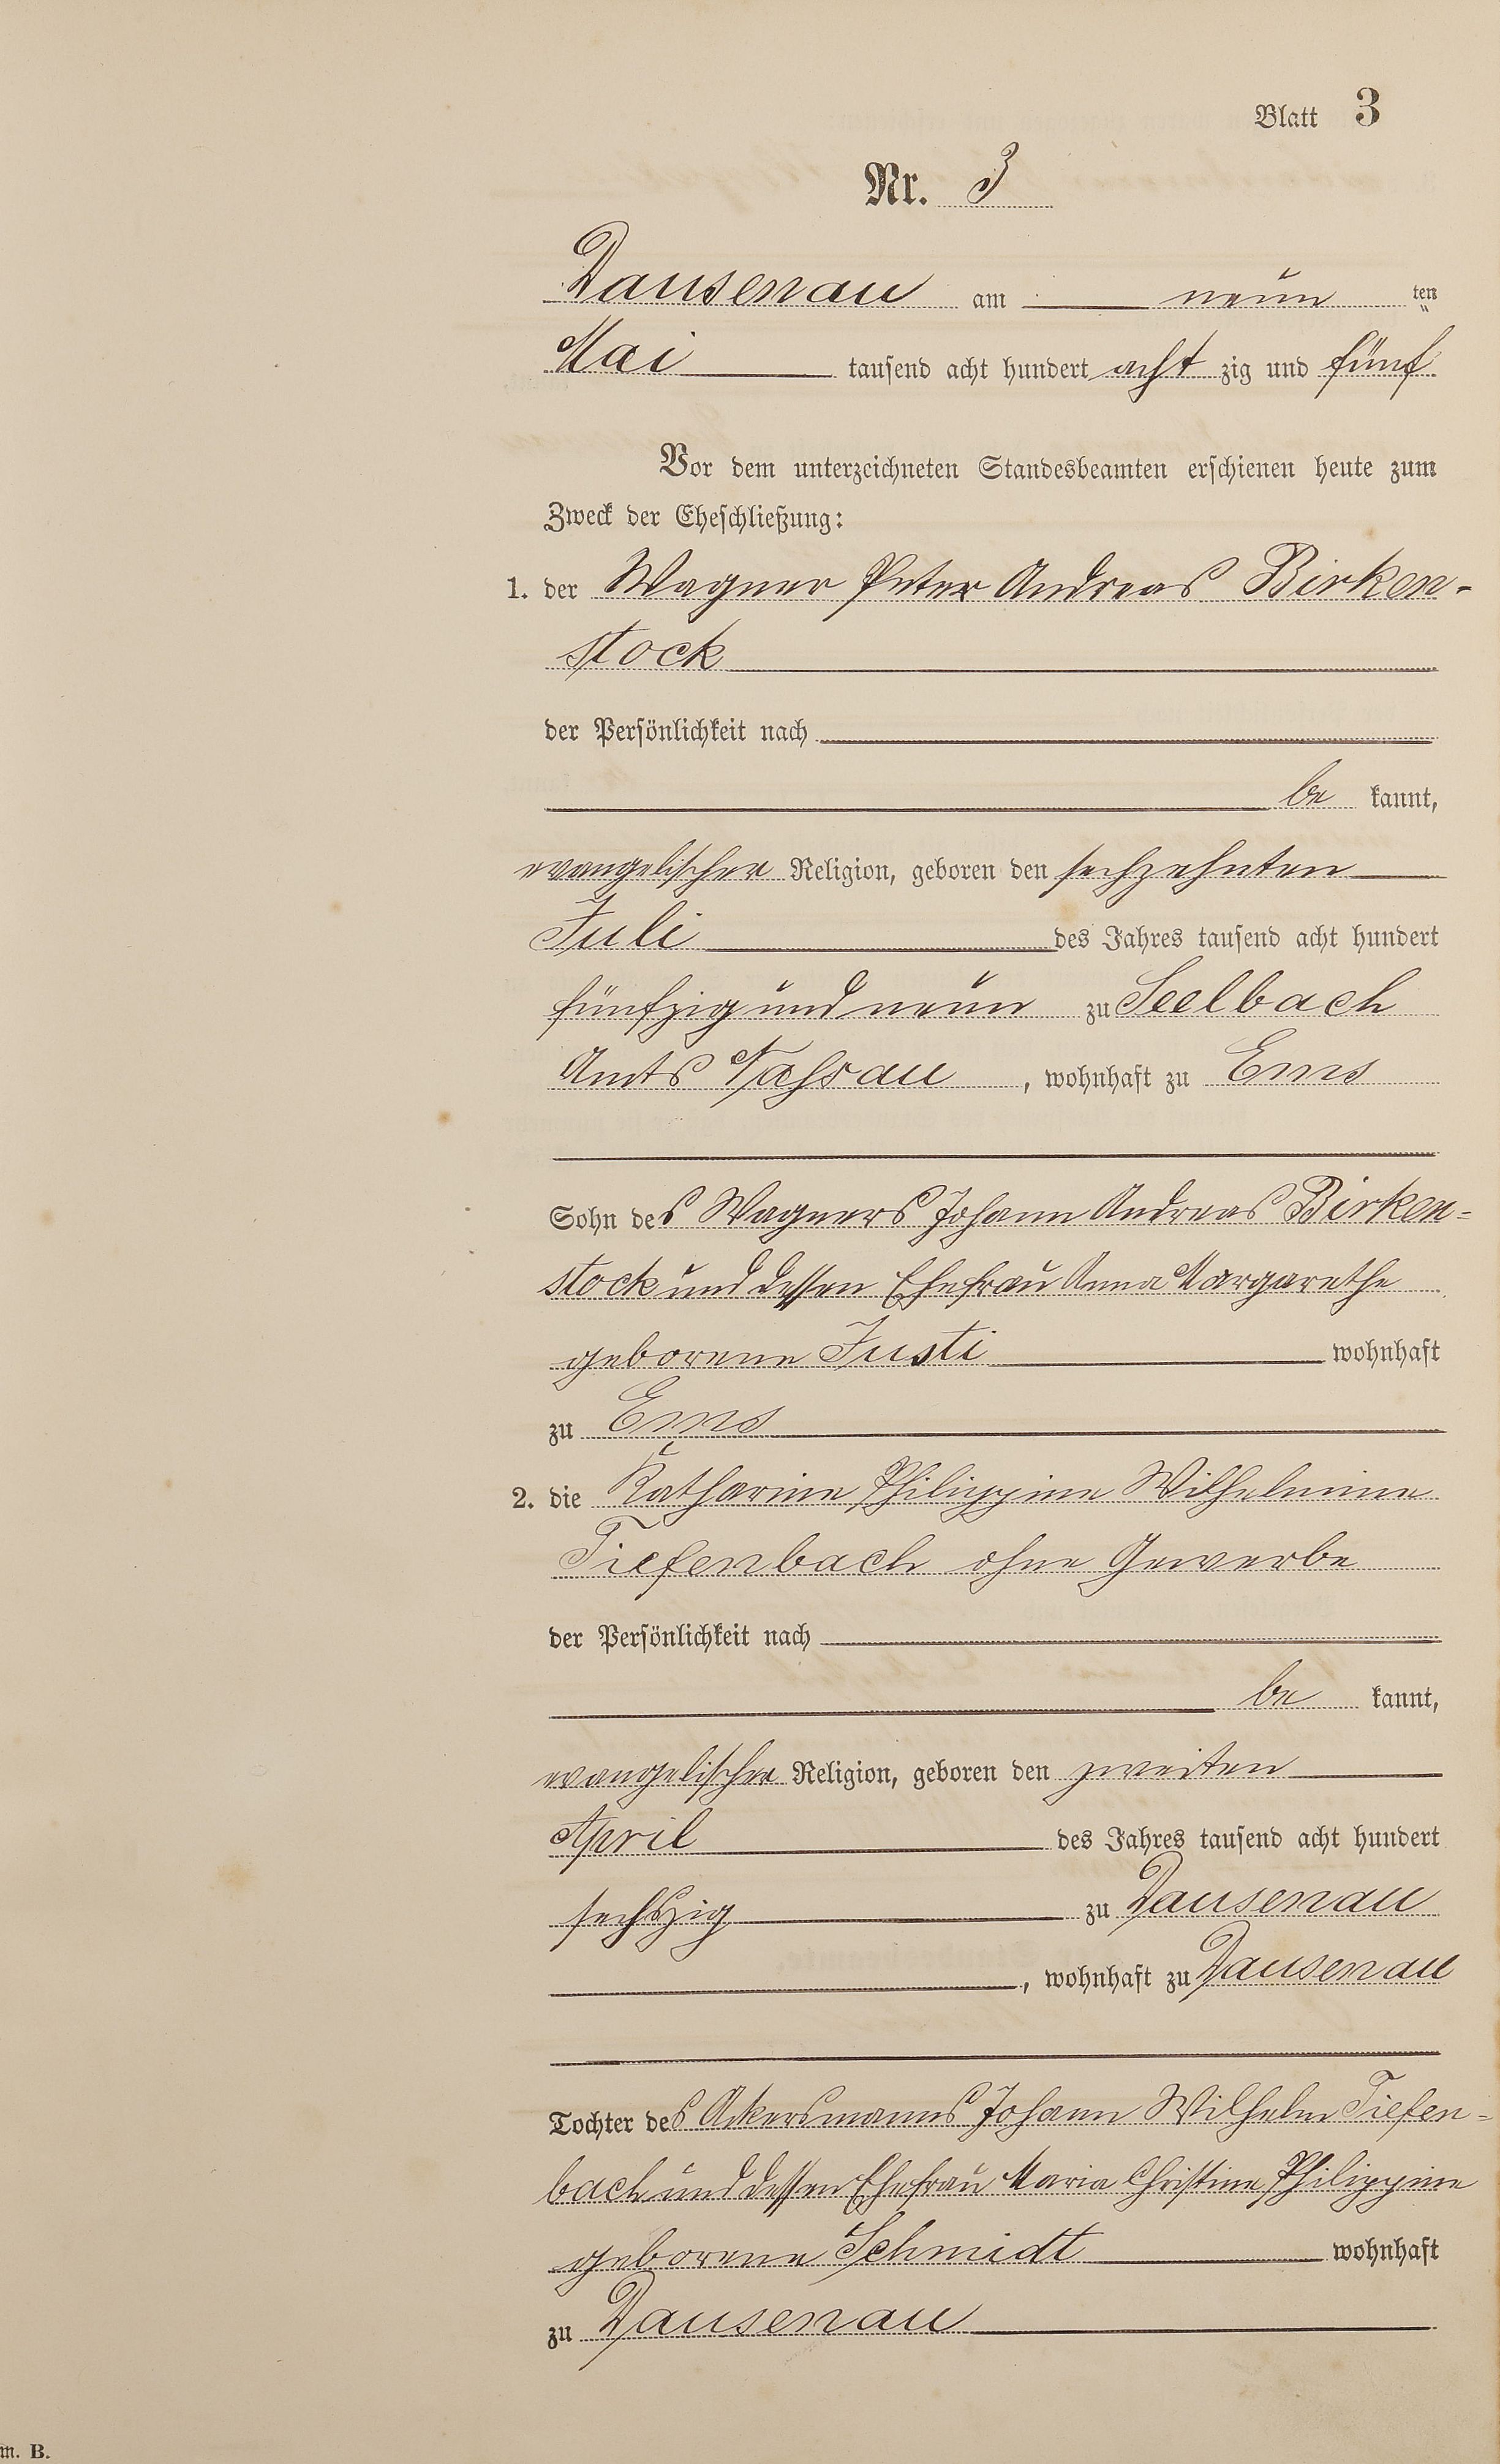 Blatt 3
Nr. 3
Dausenau am neun ten
Mai tausend acht hundert acht zig und fünf
Vor dem unterzeichneten Standesbeamten erschienen heute zum
Zweck der Eheschließung:
1. der Wagner Peter Andreas Birken-
stock
der Persönlichkeit nach
be kannt,
evangelischer Religion, geboren den sechzehnten
Juli des Jahres tausend acht hundert
fünfzig und neun zu Seelbach
Amts Nassau, wohnhaft zu Ems
Sohn des Wagners Johann Andreas Birken-
stock und dessen Ehefrau Anna Margarethe
geborene Justi wohnhaft
zu Ems
2. die Katharine Philippine Wilhelmine
Tiefenbach ohne Gewerbe
der Persönlichkeit nach
be kannt,
evangelischer Religion, geboren den zweiten
April des Jahres tausend acht hundert
sechszig zu Dausenau
, wohnhaft zu Dausenau
Tochter des Ackersmanns Johann Wilhelm Tiefen-
bach und dessen Ehefrau Maria Christine Philippine
geborene Schmidt wohnhaft
zu Dausenau
m. B.